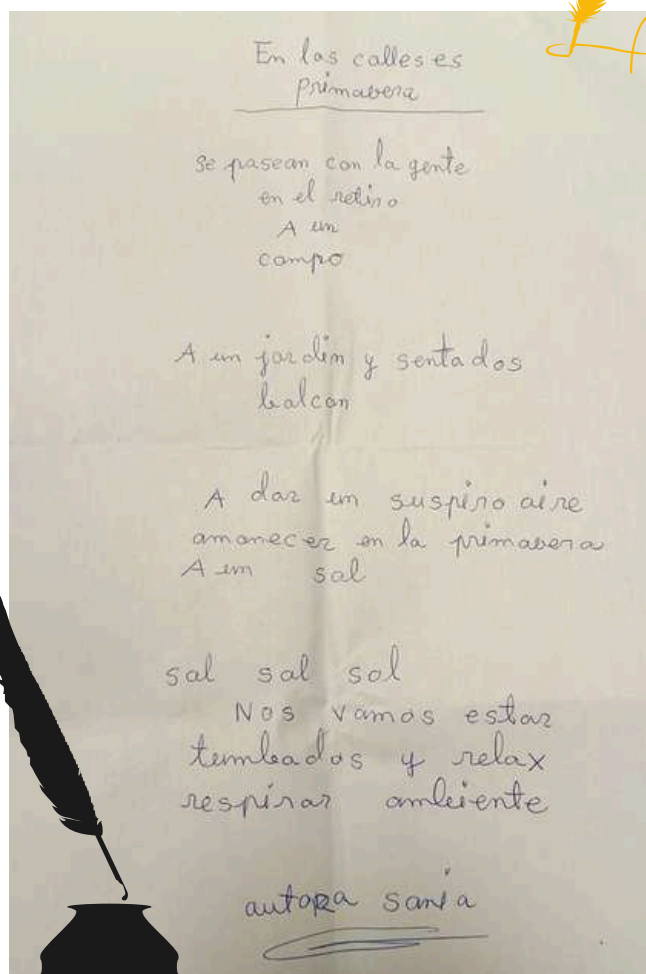 En las calles es
primavera
se pasean con la gente
en el retiro
A un
campo
A un jardin y sentados
balcon
A dar un suspiro aire
amanecer en la primavera
A un sal
sal sal sol
Nos vamos estar
tumbados y relax
respirar ambiente
autora sania